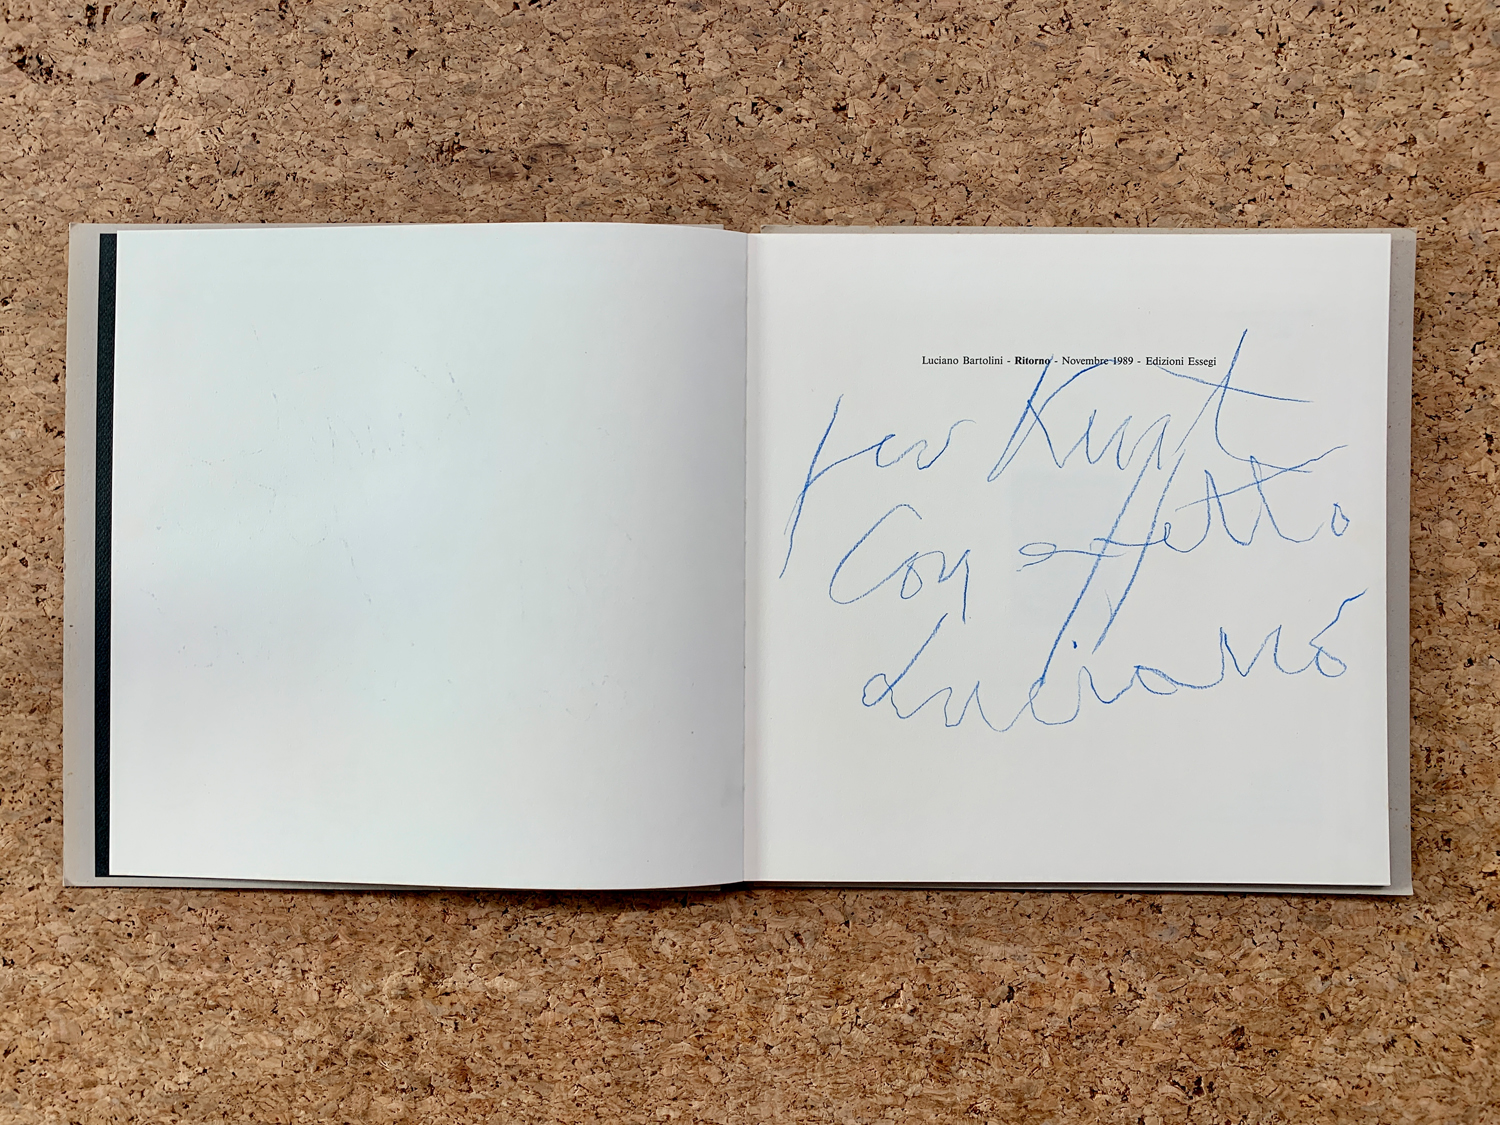 Luciano Bartolini - Ritorno - Novembre 1989 - Edizioni Essegi
per Kurt
Con affetto
Luciano